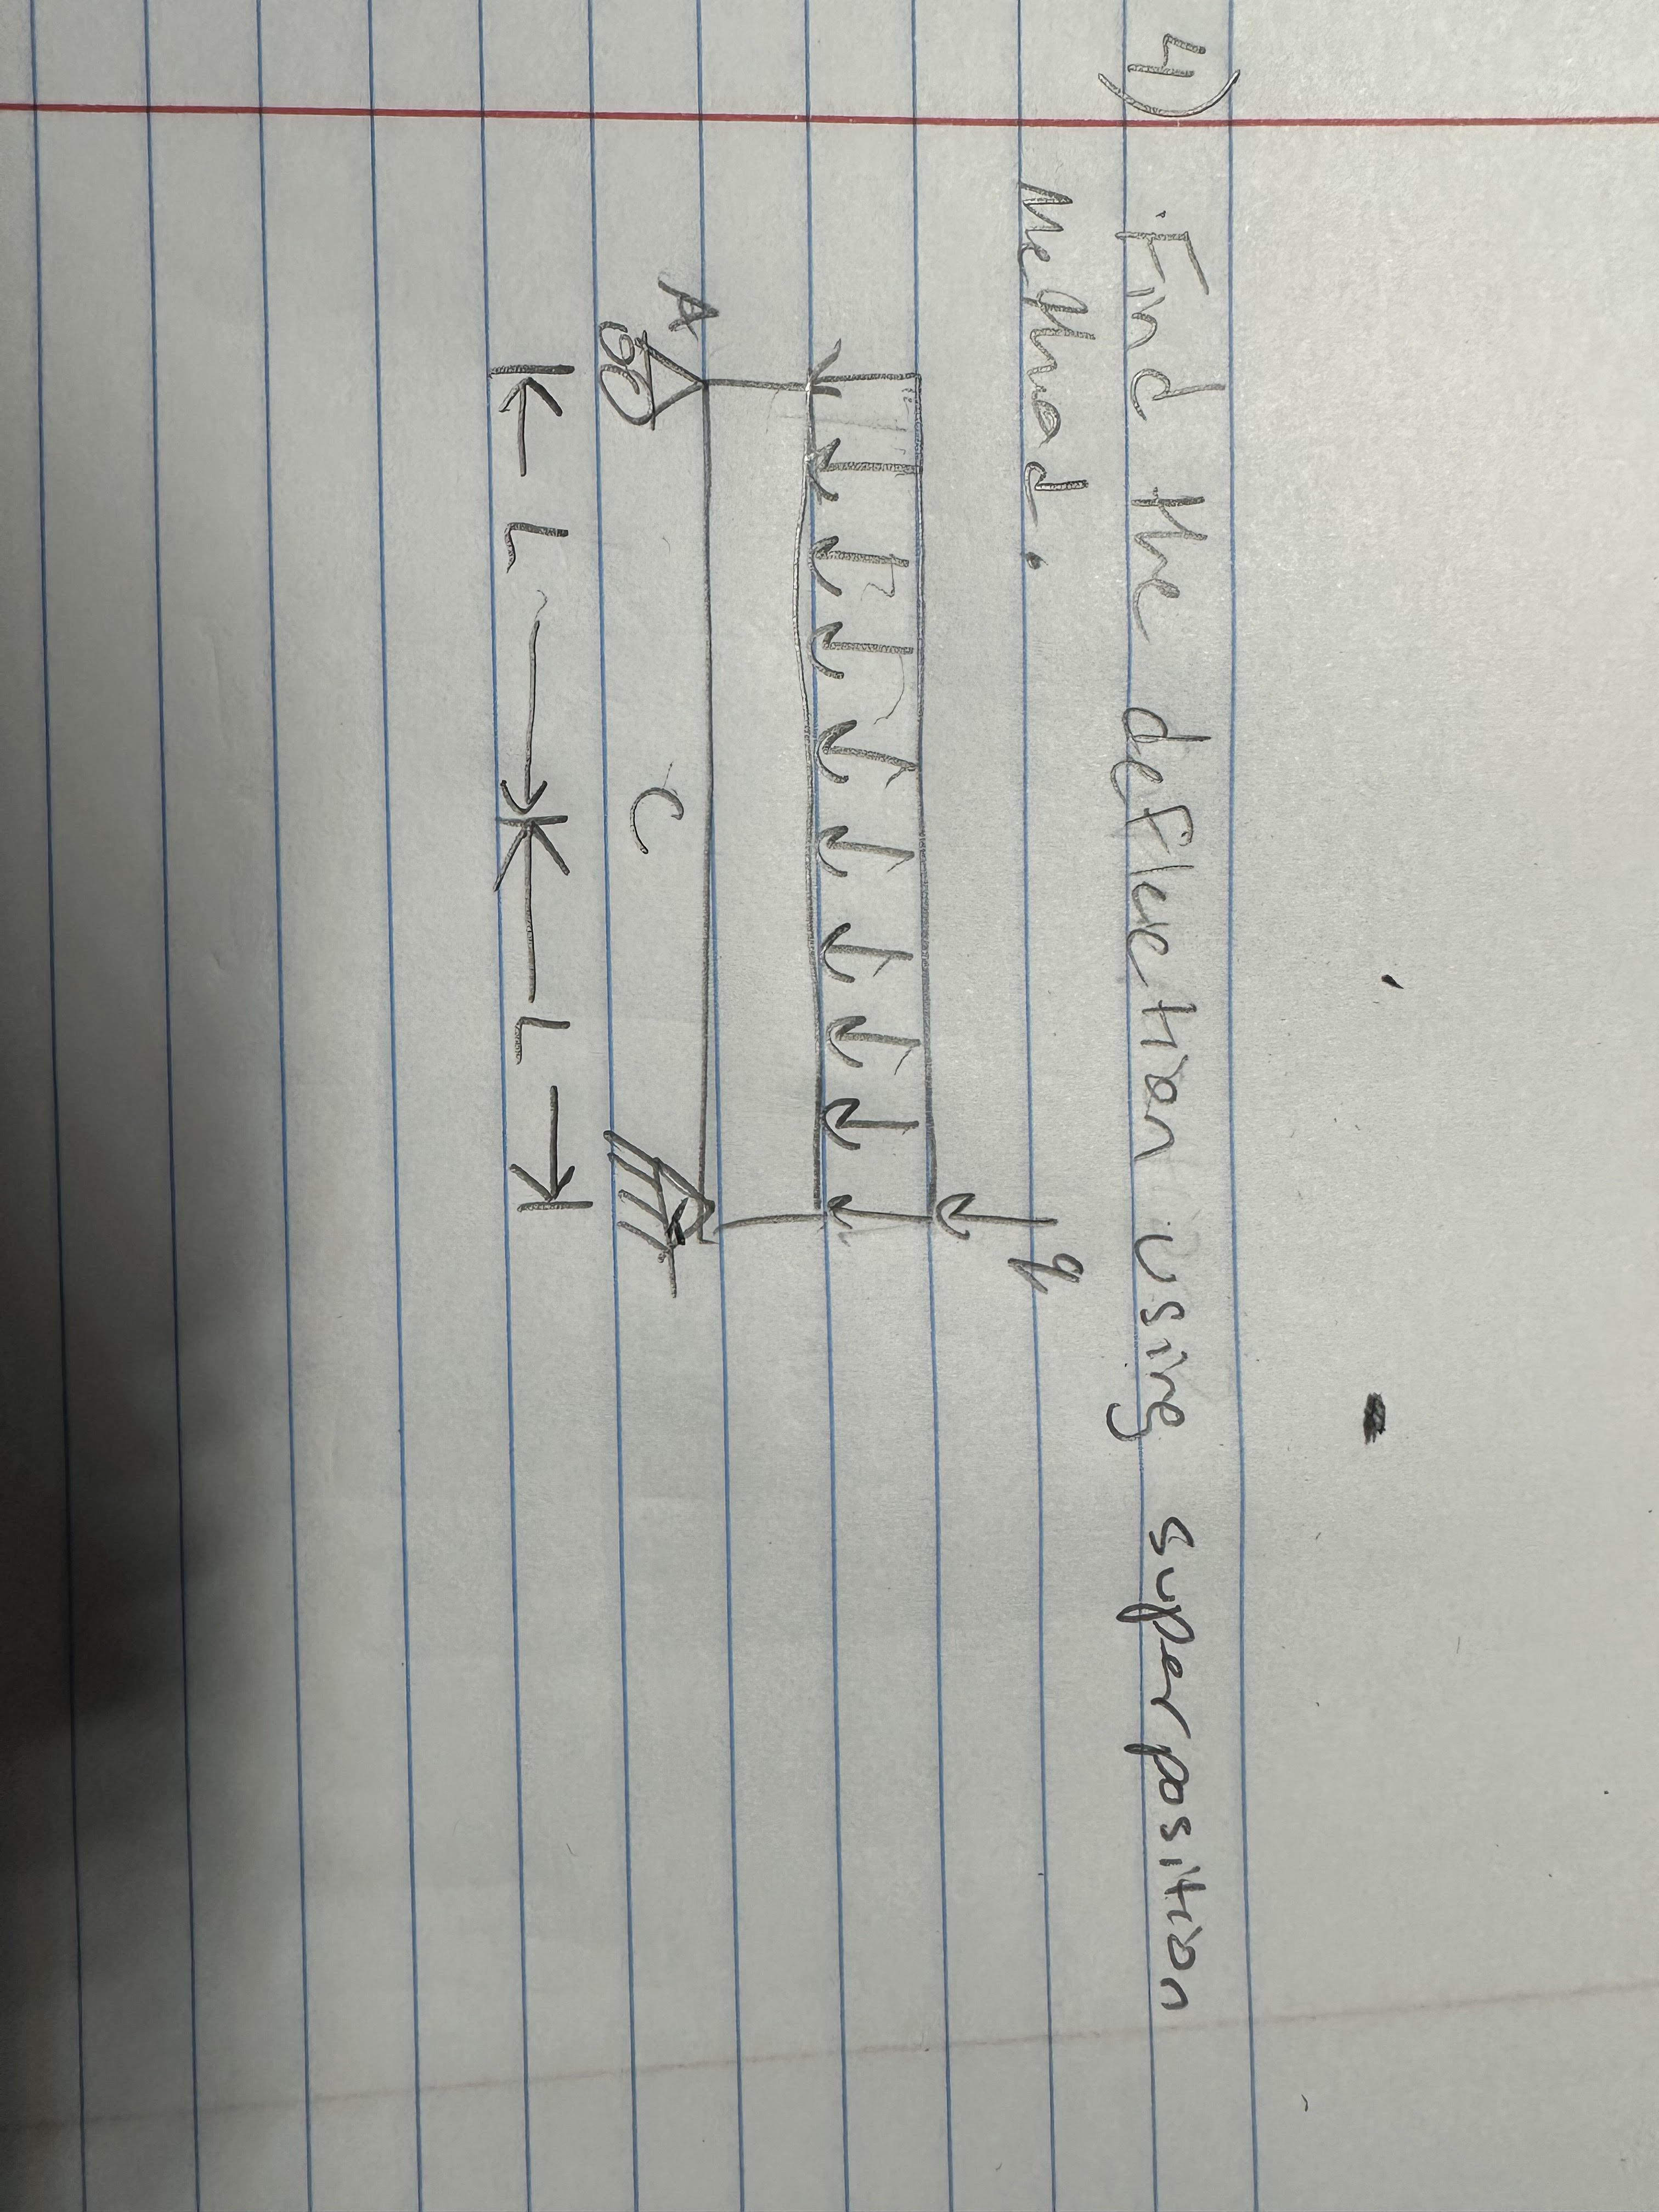 4) Find the deflection using superposition
Method.
q
A
C
L
L